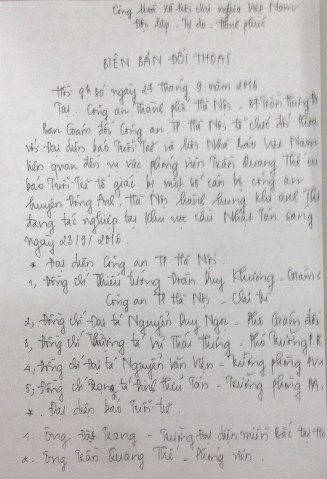 Cộng hòa xã hội chủ nghĩa Việt Nam
Độc lập - Tự do - Hạnh phúc
BIÊN BẢN ĐỐI THOẠI
Hồi 9h 50 ngày 27 tháng 9 năm 2016
Tại Công an Thành phố Hà Nội - 87 Trần Hưng Đạ
Ban Giám đốc Công an TP Hà Nội tổ chức đối thoại
với đại diện báo Tuổi Trẻ và Hội Nhà báo Việt Nam
liên quan đến vụ việc phóng viên Trần Quang Thế củ
báo Tuổi Trẻ tố giác bị một số cán bộ công an
huyện Đông Anh, Hà Nội hành hung khi anh Thế
đang tác nghiệp tại khu vực cầu Nhật Tân sáng
ngày 23/9/2016.
* Đại diện Công an TP Hà Nội:
1, Đồng chí Thiếu tướng Đoàn Duy Khương - Giám đ
Công an TP Hà Nội - Chủ trì
2, Đồng chí Đại tá Nguyễn Duy Ngọc - Phó Giám đốc
3, Đồng chí Thượng tá Vũ Thái Hưng - Phó Trưởng
4, Đồng chí Đại tá Nguyễn Văn Viện - Trưởng phòng
5, Đồng chí Trung tá Đinh Tân - Trưởng phòng PA
*. Đại diện báo Tuổi trẻ
1. Ông Trang - Trưởng Đại diện miền Bắc tại Hà
2. Ông Trần Quang Thế - Phóng viên.